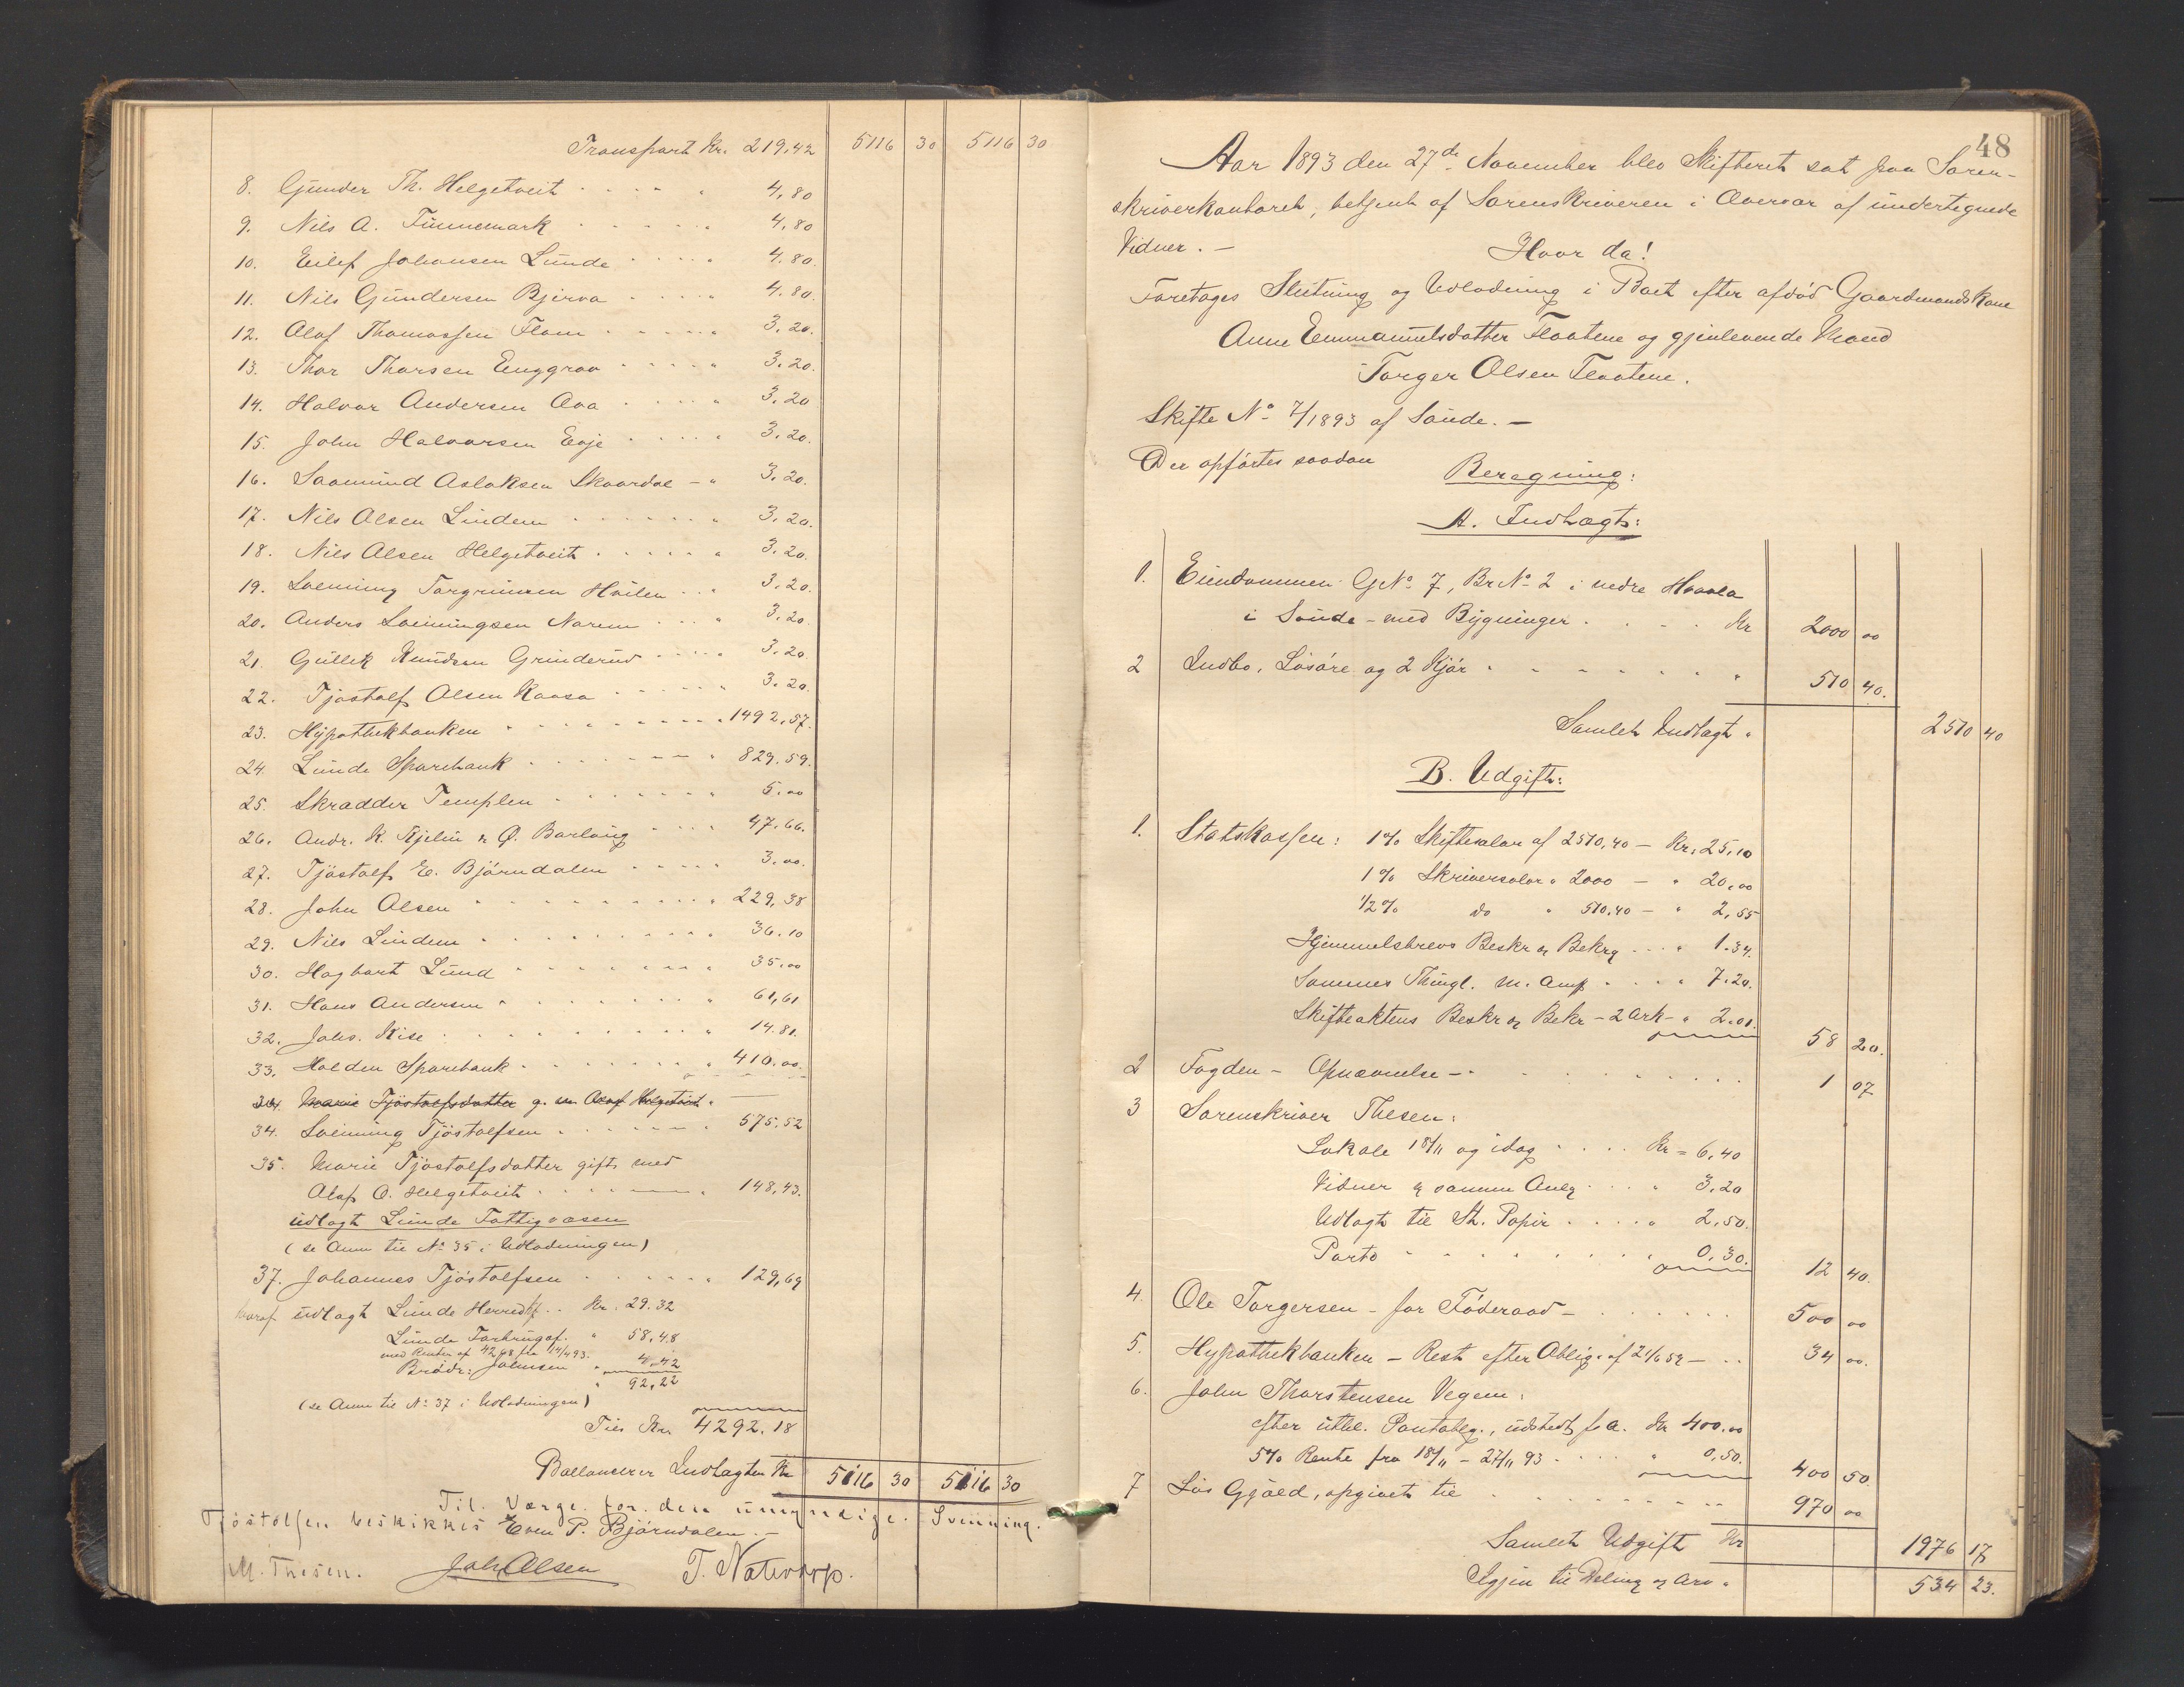 Transport Kr. 219,42 5116 30 5116 30
8. Gunder Th. Helgetveit 4,80
9. Nils A. Tinnemark 4,80
10. Eilef Johansen Lunde 4,80.
11. Nils Gundersen Bjerva 4,80.
12. Olaf Thomassen Flom 3,20.
13. Thor Thorsen Enggrav 3,20.
14. Halvor Andersen Ova 3,20
15. John Halvorsen Evje 3,20.
16. Saamund Aslaksen Skaardal - " 3,20.
17. Nils Olsen Lindem 3,20.
18. Nils Olsen Helgetveit 3,20.
19. Svenning Torgrimsen Hvilen 3,20.
20. Anders Svenningsen Narum 3,20.
21. Gullik Knudsen Grinderud 3,20
22. Tjostolf Olsen Kaasa 3,20.
23. Hypothekbanken 1492,57.
24. Lunde Sparebank 829,59.
25. Skrædder Templen 5,00
26. Andr. K. Kjelin & Ø. Borlaug 47,66.
27. Tjøstolf E. Bjørndalen 3,00.
28. John Olsen 229,38
29. Nils Lindem 36.10
30. Hagbart Lund 35,00
31. Hans Andersen 61,61
32. Johs. Kise 14.81.
33. Holden Sparebank 410.00.
34. Marie Tjøstolfsdatter g. m Olaf Helgetveit "
34. Svenning Tjøstolfsen 575,52
35. Marie Tjøstolfsdatter gift med
Olaf O. Helgetveit 148,43.
udlagt Lunde Fattigvæsen
(se Anm til No 35 i Udlodningen)
37. Johannes Tjøstolfsen 129,69
hvoraf udlagt Lunde Herredsk. Kr. 29.32
Lunde Forbrugsf. " 58,48
med Renter af 42,98 fra 14/4 93.
Brødr: Johnsen " 4,42
" 92,22
(se Anm til No 37 i Udlodningen)
Tils Kr. 4292.18
Ballancerer Indtægten Kr 5116 30 5116 30
Til Værge for den umyndige Svenning
Tjöstolsen beskikkes Even P. Bjørndalen.-
M. Thesen. Joh. Olsen T. Natvorp.
48
Aar 1893 den 27de November blev Skifteret sat paa Soren-
skriverkontoret, betjent af Sorenskriveren i Overvær af undertegnede
Vidner. -
Hvor da!
Foretages Slutning og Udlodning i Boet efter afdød Gaardmandskone
Anne Emmanuelsdatter Flaatene og gjenlevende Mand
Torger Olsen Flaatene.
Skifte No 7/1893 af Saude. -
Der opførtes saadan
Beregning:
A. Indtægt:
1. Eiendommen GNo 7, BrNo 2 i nedre Haavla
i Saude - med Bygninger Kr 2000 00
2 Indbo, Løsøre og 2 Kjør " 510 40.
Samlet Indtægt " 2510 40
B. Udgift:
1. Statskassen: 1% Skiftesalær af 2510,40 - Kr. 25,10
1% Skriversalær " 2000 - " 20,00
1/2% do " 510.40 - " 2,55
Hjemmelsbrevs Beskr og Bekrg " 1.34.
Sammes Thingl. m. Anf " 7.20.
Skifteaktens Beskr og Bekr - 2 Ark - " 2.01. 58 20.
2 Fogden - Opnævnelse - 1 07
3 Sorenskriver Thesen:
Lokale 18/11 og idag Kr = 6,40
Vidner i samme Anlg " 3,20
Udlagt til St. Papir " 2,50.
Porto " 0.30. 12 40.
4. Ole Torgersen - for Føderaad - 500 00
5. Hypothekbanken - Rest efter Oblig. af 21/6 59 - 34 00.
6. John Thorstensen Vegem:
efter uthl. Pantoblg., udstedt f. a. Kr 400.00
5% Rente fra 18/11 - 27/11 93 " 0,50. 400 50.
7 Løs Gjæld, opgivet til 970 00
Samlet Udgift Kr 1976 17
Igjen til Deling og Arv " 534 23.